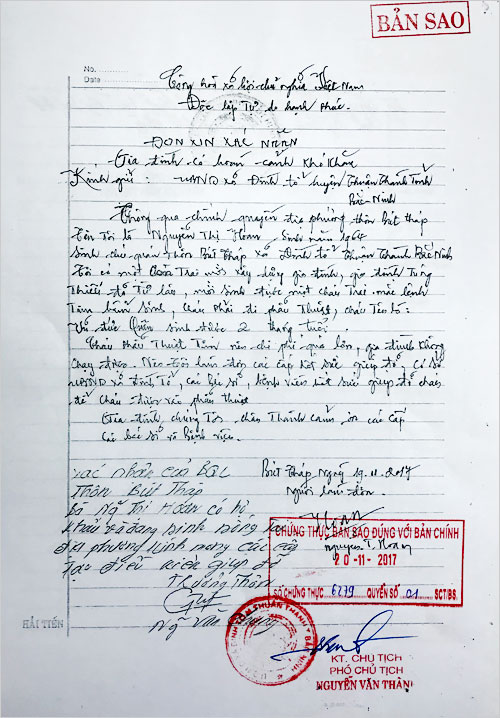 BẢN SAO
No.
Date
Cộng hòa xã hội chủ nghĩa Việt Nam
Độc lập Tự do hạnh phúc
ĐƠN XIN XÁC NHẬN
Gia đình có hoàn cảnh khó khăn
Kính gửi: UBND xã Đình tổ huyện Thuận Thành Tỉnh
Bắc Ninh
Thông qua chính quyền địa phương thôn Bút tháp
Tên Tôi là Nguyễn Thị Hoan Sinh năm 1964
Sinh chú quán Thôn Bút Tháp xã Đình tổ Thuận Thành Bắc Ninh
Tôi có một Trai mới xây dựng gia đình, gia đình Túng
Thiếu đã mới sinh được một cháu Trai mắc bệnh
Tim bẩm sinh, cháu phải đi phẫu Thuật, cháu Tên là:
Vũ đức sinh được 2 tháng tuổi
Cháu phẫu Thuật Tim nên chi phí quá lớn, gia đình không
chạy được. Nên tôi làm đơn các cấp hết sức giúp đỡ, Cơ sở
UBND xã Đình Tổ, các bác sĩ, bệnh viện hết sức giúp đỡ cho
để cháu được vào phẫu thuật
Gia đình chúng Tôi chân Thành cảm ơn các cấp
Các bác sĩ và bệnh viện.
Bút Tháp Ngày 19.11.2017
Người làm đơn
Hoan
Nguyễn T. Hoan
Xác nhận của
Thôn Bút Tháp
Bà Ng Thị Hoan có hộ
khẩu và đang sinh sống tại
địa phương kính mong các cấp
tạo điều kiện giúp đỡ
Trưởng Thôn
Ng Văn
CHỨNG THỰC BẢN SAO ĐÚNG VỚI BẢN CHÍNH
20-11-2017
SỐ CHỨNG THỰC 6279 QUYỂN SỐ 01 SCT/BS
HẢI TIẾN
KT. CHỦ TỊCH
PHÓ CHỦ TỊCH
NGUYỄN VĂN THÀNH